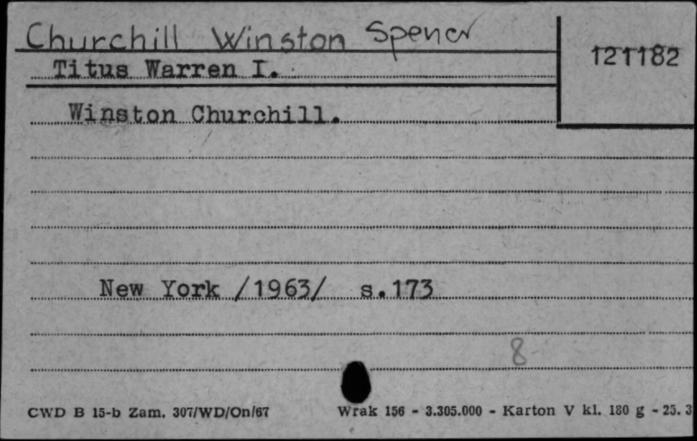 Churchill Winston Spencer
121182
Titus Warren I.
Winston Churchill.
New York /1963/ s.173
8
CWD B 15-b Zam. 307/WD/On/67 Wrak 156 - 3.305.000 - Karton V kl. 180 g - 25. 3